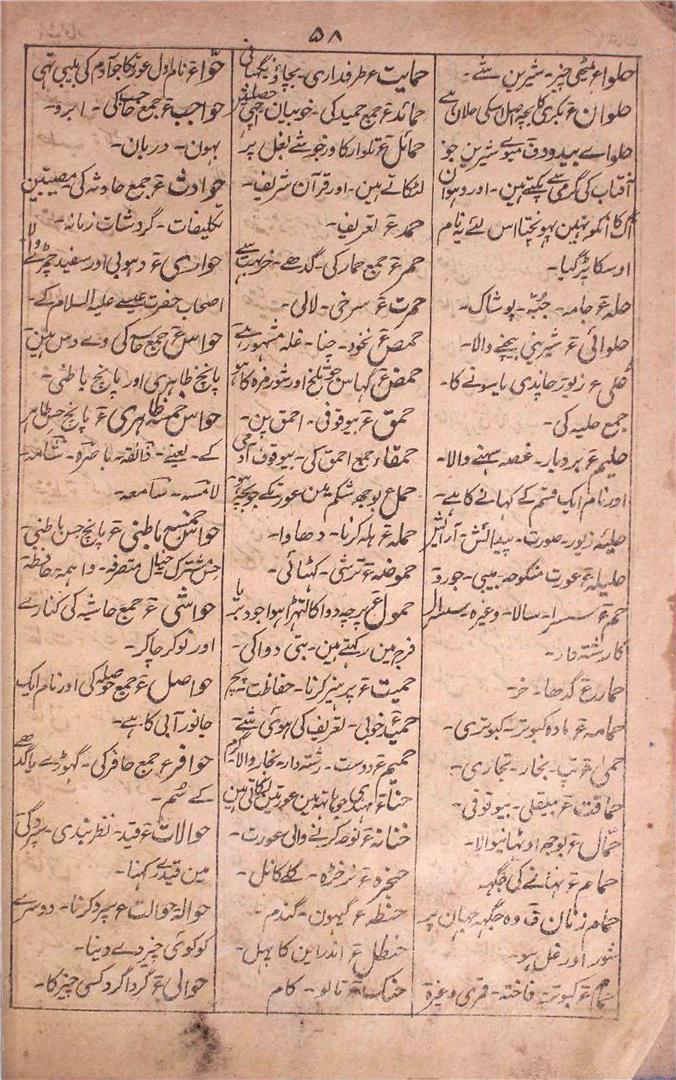 ۵۸
حلوا ع میٹھی چیز۔ شیرین شے۔
حلوان ع بکری کا بچہ
حلواے بیدود ف میوے شیرین جو
آفتاب کی گرمی سے پکتے ہین۔ اور دہوان
آگ کا انکو نہین پہونچتا اس لئے یہ نام
اوسکا پڑ گیا۔
حلہ ع جامہ۔ جُبّہ۔ پوشاک۔
حلوائی ع شیرینی بیچنے والا۔
حلی ع زیور چاندی یا سونے کا۔
جمع حلیہ کی۔
حلیم ع بردبار۔ غصہ سہنے والا۔
اور نام ایک قسم کے کہانے کا ہے۔
حلیہ ع زیور۔ صورت۔ آرایش
حلیلہ ع عورت منکوحہ۔ بیبی۔ جورو
حم ع سسرا۔ سالا۔ وغیرہ سسرال
کا رشتہ دار۔
حمار ع گدھا۔ خر۔
حمامہ ع مادہ کبوتر۔ کبوتری۔
حمیٰ ع تپ۔ بخار۔
حماقت ع بیعقلی۔ بیوقوفی۔
حمّال ع بوجھ اوٹہانیوالا۔
حمام ع نہانے کی جگہہ
حمام زنان ف وہ جگہہ جہان پر
شور اور غل ہو۔
حمام ع کبوتر۔ فاختہ۔ قمری وغیرہ
حمایت ع طرفداری۔ بچاؤ۔ نگہبانی
حمائد ع جمع حمیدہ کی۔ خوبیان
حمائل ع تلوار کا ور جو شے بغل پر
لٹکاتے ہین۔ اور قرآن شریف۔
حمد ع تعریف۔
حمر ع جمع حمار کی۔ گدھے۔
حمرت ع سرخی۔ لالی۔
حمص ع نخود۔ چنا۔ غلہ مشہور ہے
حمض ع گہاس جو تلخ اور شور مزہ کا ہو
حمق ع بیوقوفی۔ احمق پن۔
حمقاء جمع احمق کی۔ بیوقوف آدمی
حمل ع بوجھ شکم مین عورت کے جو بچہ ہو
حملہ ع ہلہ کرنا۔ دھاوا۔
حموضہ ع ترشی۔ کھٹائی۔
حمول ع پرچہ دوا کا لتہڑا ہوا جو دبر یا
فرج مین رکہتے ہین۔ بتی دوا کی۔
حمیت ع پرہیز کرنا۔ حفاظت
حمید ع خوبی۔ تعریف کی ہوئی شے۔
حمیم ع دوست۔ رشتہ دار۔ بخار والا۔ گرم
حناء ع مہندی جو ہاتہہ مین عورتین لگاتی ہین
حنانہ ع نوحہ کرنے والی عورت۔
حنجرہ ع نرخڑہ۔ گلے کا نل۔
حنطہ ع گیہون۔ گندم۔
حنظل ع اندراین کا پہل۔
حنک ع تالو۔ کام
حوّا ع نام اول عورت کا جو آدم کی بیبی تہی
حواجب ع جمع حاجب کی۔ ابرو۔
بہون۔ دربان۔
حوادث ع جمع حادثہ کی۔ مصیبتین
تکلیفات۔ گردشات زمانہ۔
حواری ع دہوبی اور سفید چمڑے والا
اصحاب حضرت عیسے علیہ السلام کے۔
حواس ع جمع حاسہ کی وے دس ہین
پانچ ظاہری اور پانچ باطنی۔
حواس خمسہ ظاہری ع پانچ حس ظاہر
کے۔ یعنے۔ ذائقہ۔ باصرہ۔ شامہ۔
لامسہ۔ سامعہ۔
حواس خمسہ باطنی ع پانچ حس باطنی۔
حس مشترک۔ خیال۔ متصرفہ۔ واہمہ۔ حافظہ
حواشی ع جمع حاشیہ کی کنارے
اور نوکر چاکر۔
حواصل ع جمع حوصلہ کی اور نام ایک
جانور آبی کا ہے۔
حوافر ع جمع حافر کی۔ گہوڑے یا گدھے
کے سُم۔
حوالات ع قید۔ نظر بندی۔ سپردگی
مین قیدے کہنا۔
حوالہ حوالت ع سپرد کرنا۔ دوسرے
کو کوئی چیز دے دینا۔
حوالی ع گردا گرد کسی چیز کا۔